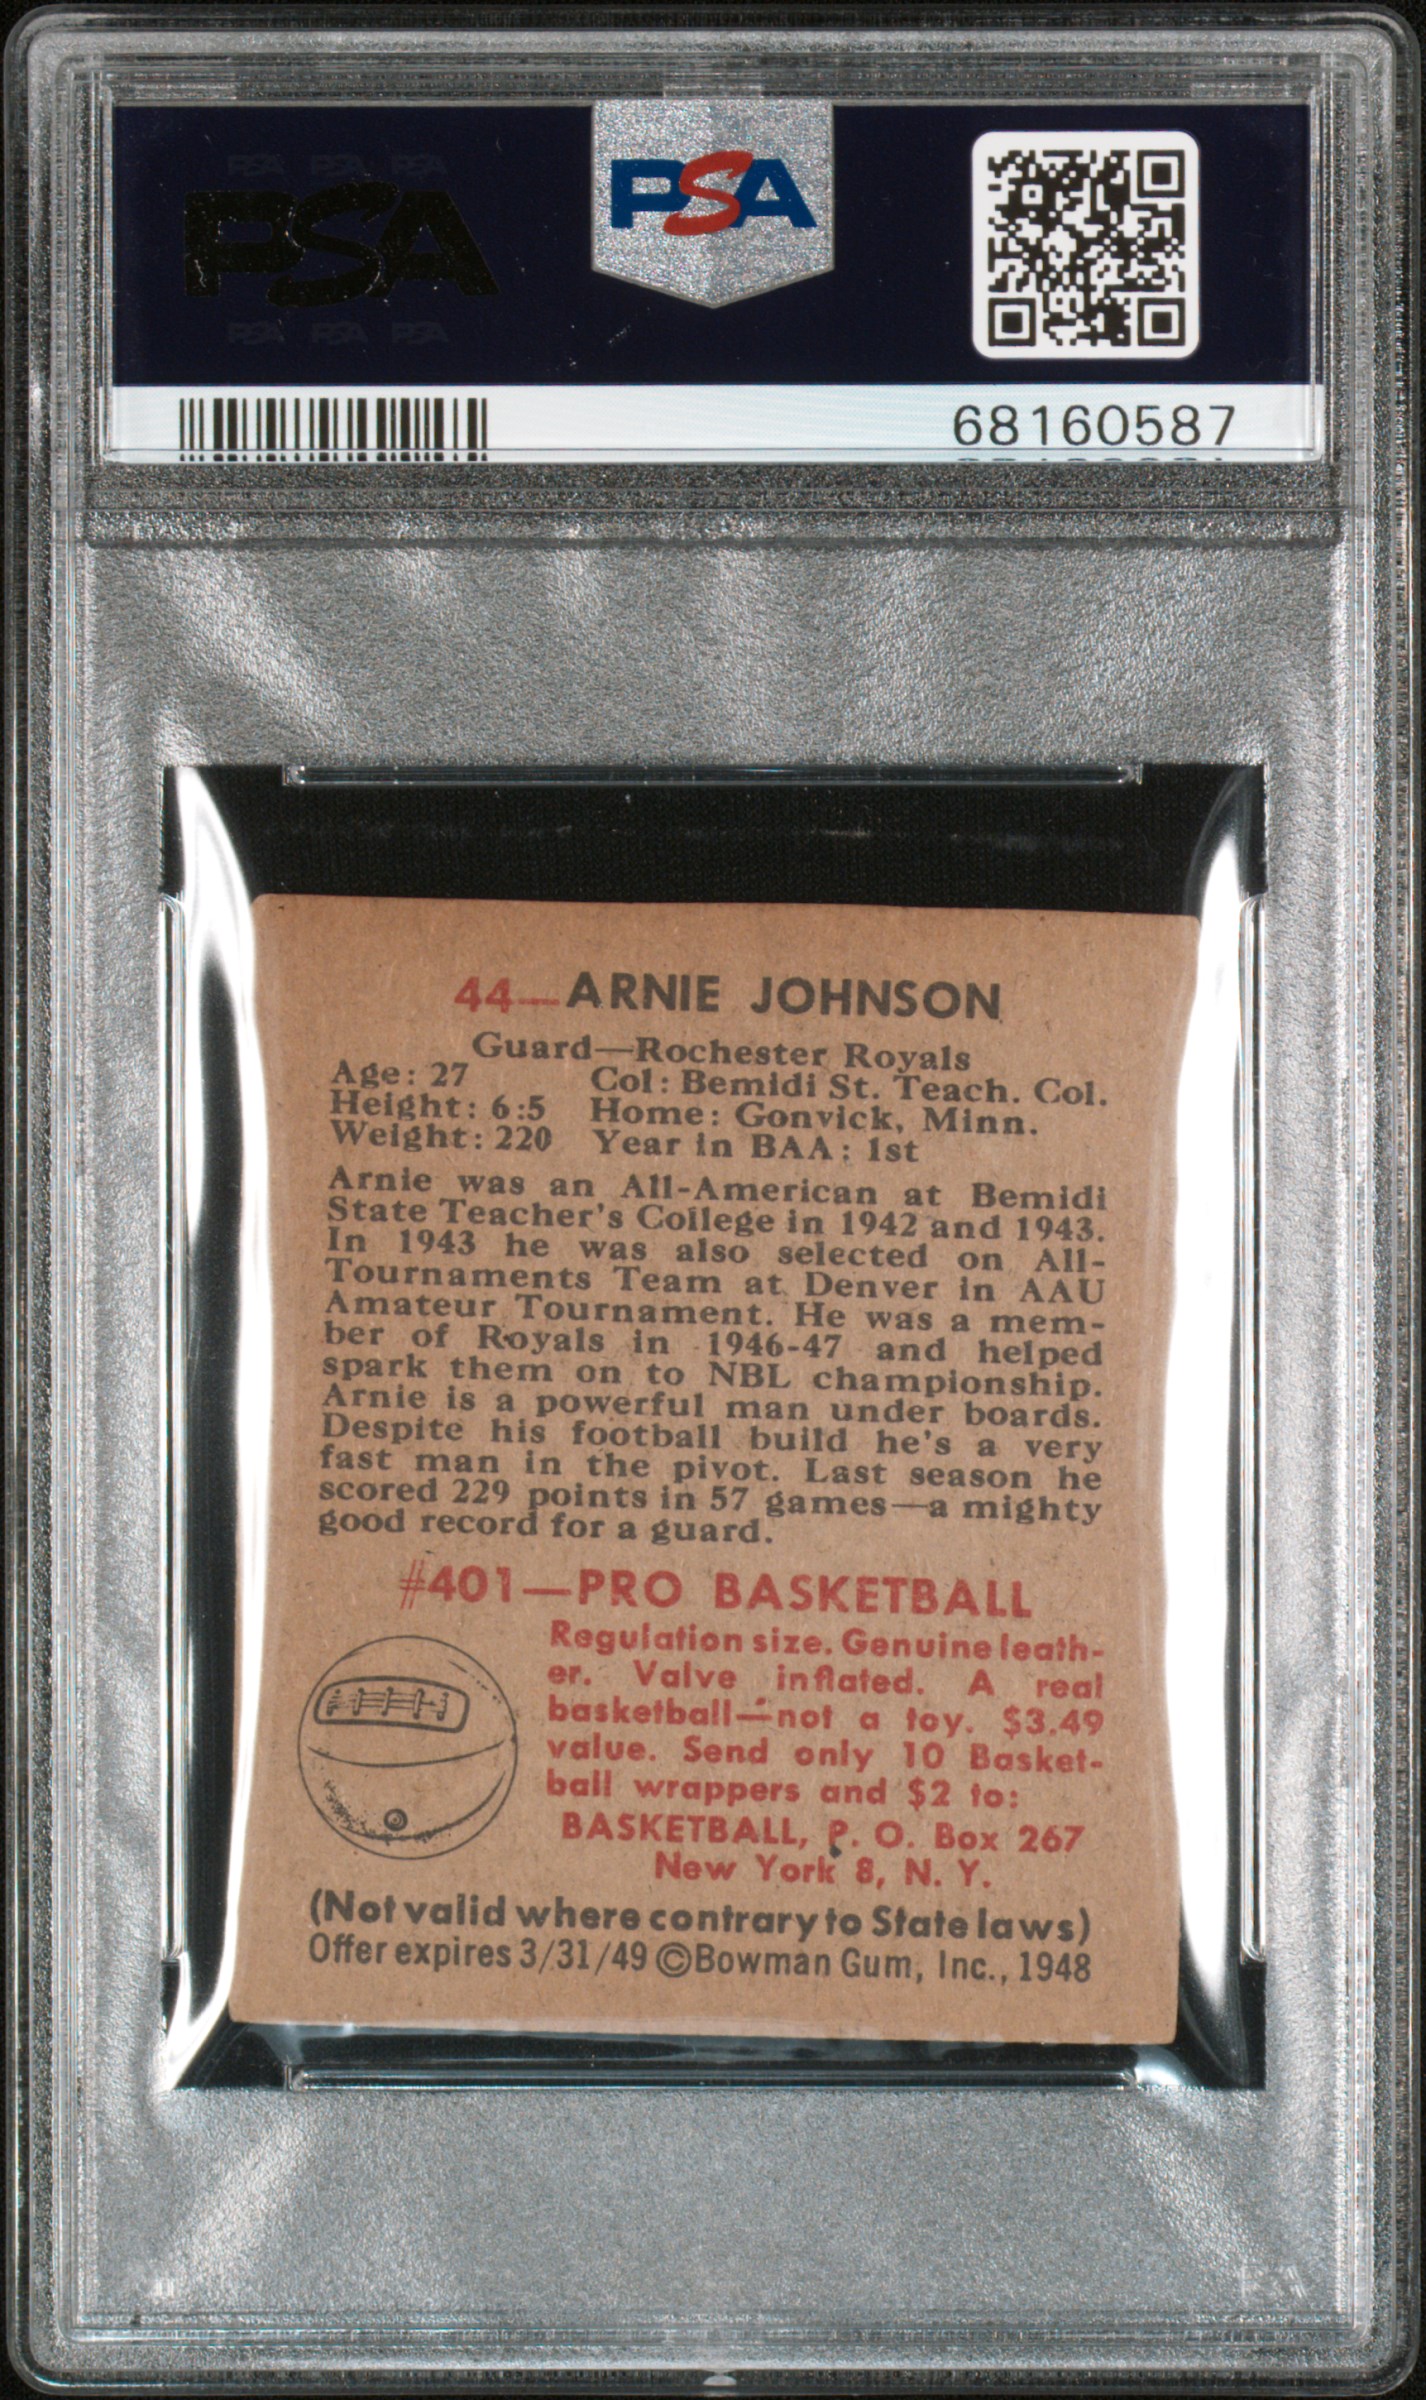 PSA PSA PSA
PSA
PSA PSA PSA
PSA
68160587
44—ARNIE JOHNSON
Guard—Rochester Royals
Age: 27 Col: Bemidi St. Teach. Col.
Height: 6:5 Home: Gonvick, Minn.
Weight: 220 Year in BAA: 1st
Arnie was an All-American at Bemidi
State Teacher's College in 1942 and 1943.
In 1943 he was also selected on All-
Tournaments Team at Denver in AAU
Amateur Tournament. He was a mem-
ber of Royals in 1946-47 and helped
spark them on to NBL championship.
Arnie is a powerful man under boards.
Despite his football build he's a very
fast man in the pivot. Last season he
scored 229 points in 57 games—a mighty
good record for a guard.
#401—PRO BASKETBALL
Regulation size. Genuine leath-
er. Valve inflated. A real
basketball—not a toy. $3.49
value. Send only 10 Basket-
ball wrappers and $2 to:
BASKETBALL, P. O. Box 267
New York 8, N. Y.
(Not valid where contrary to State laws)
Offer expires 3/31/49 ©Bowman Gum, Inc., 1948